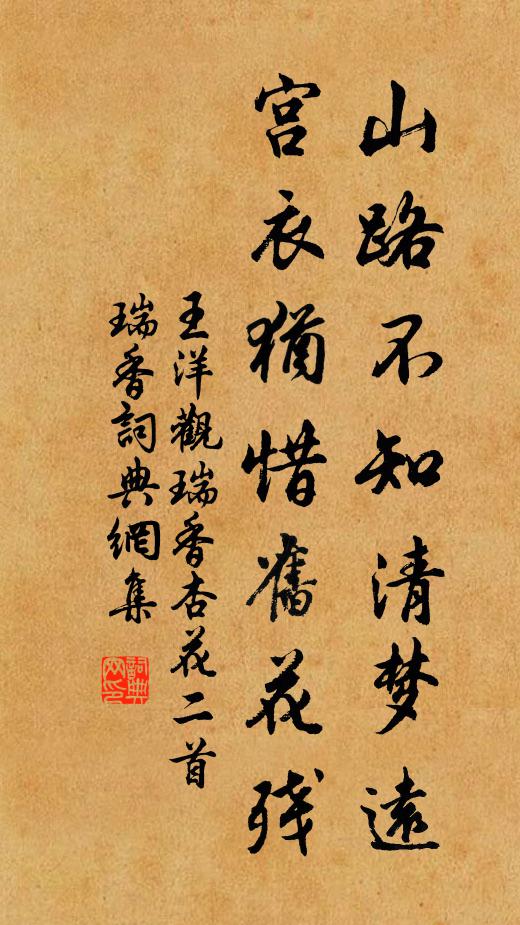 山路不知清梦遠
宫衣犹惜舊花残
王洋觀瑞香杏花二首
瑞香詞典網集
詞典网印